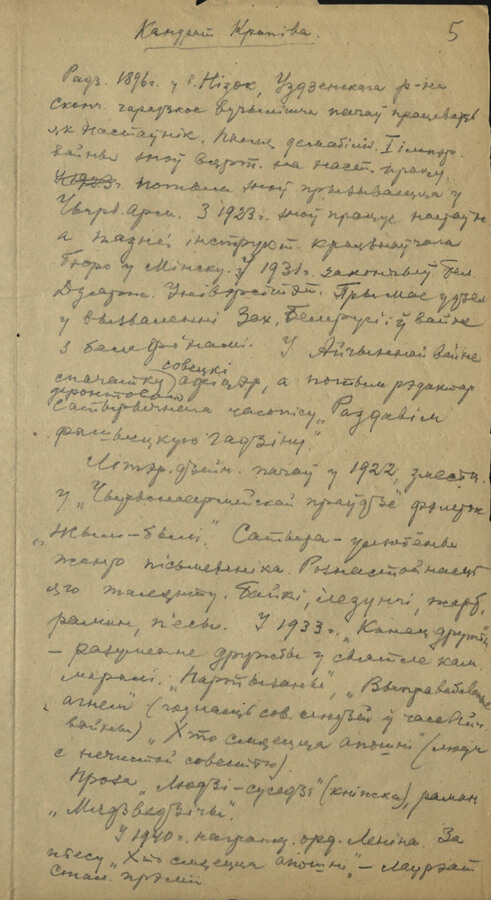 Кандрат Крапіва.
5
Радз. 1896 г. у в. Нізок, Уздзенскага р-на
Сконч. гарадское вучылішча пачаў працаваць
як настаўнік. Пасля дэмабіліз. I імпер.
вайны зноў на наст. працу.
1923 г. потым зноў прызываецца у
Чырв. Арм. З 1923 г. зноў працуе настаўн.
а пазней інструкт. краязнаўчага
бюро у Мінску. У 1931 г. закончыў Бел
Дзярж. Універсітэт. Прымае удзел
у вызваленні Зах. Беларусі і ў вайне
з белафінамі. У Айчыннай вайне
совецкі
спачатку афіцэр, а потым рэдактор
фронтовай
сатырычнага часопісу "Раздавім
фашысцкую гадзіну".
Літэр. дзейн. пачаў у 1922, змесц.
у "Чырвонаармейскай праўдзе" фэльетон
"Жылі-былі". Сатыра - улюбёны
жанр пісьменніка. Рознастойнасць
яго таленту. Байкі,
раман, п'есы. У 1933 г. "Канец дружбы"
- разуменне дружбы у святле кам.
маралі. "Партызаны", "Выпрабаванне
агнём" (годнасць сов. людзей ў часе Айч.
вайны) "Хто смяецца апошнім" (людзі
с нечистой совестью)
Проза "Людзі-суседзі" (кніжка), раман
"Мядзведзічы".
У 1940 г. нагарадж. орд. Леніна. За
п'есу "Хто смяецца апошнім", - Лаурэат
Стал. прэміі